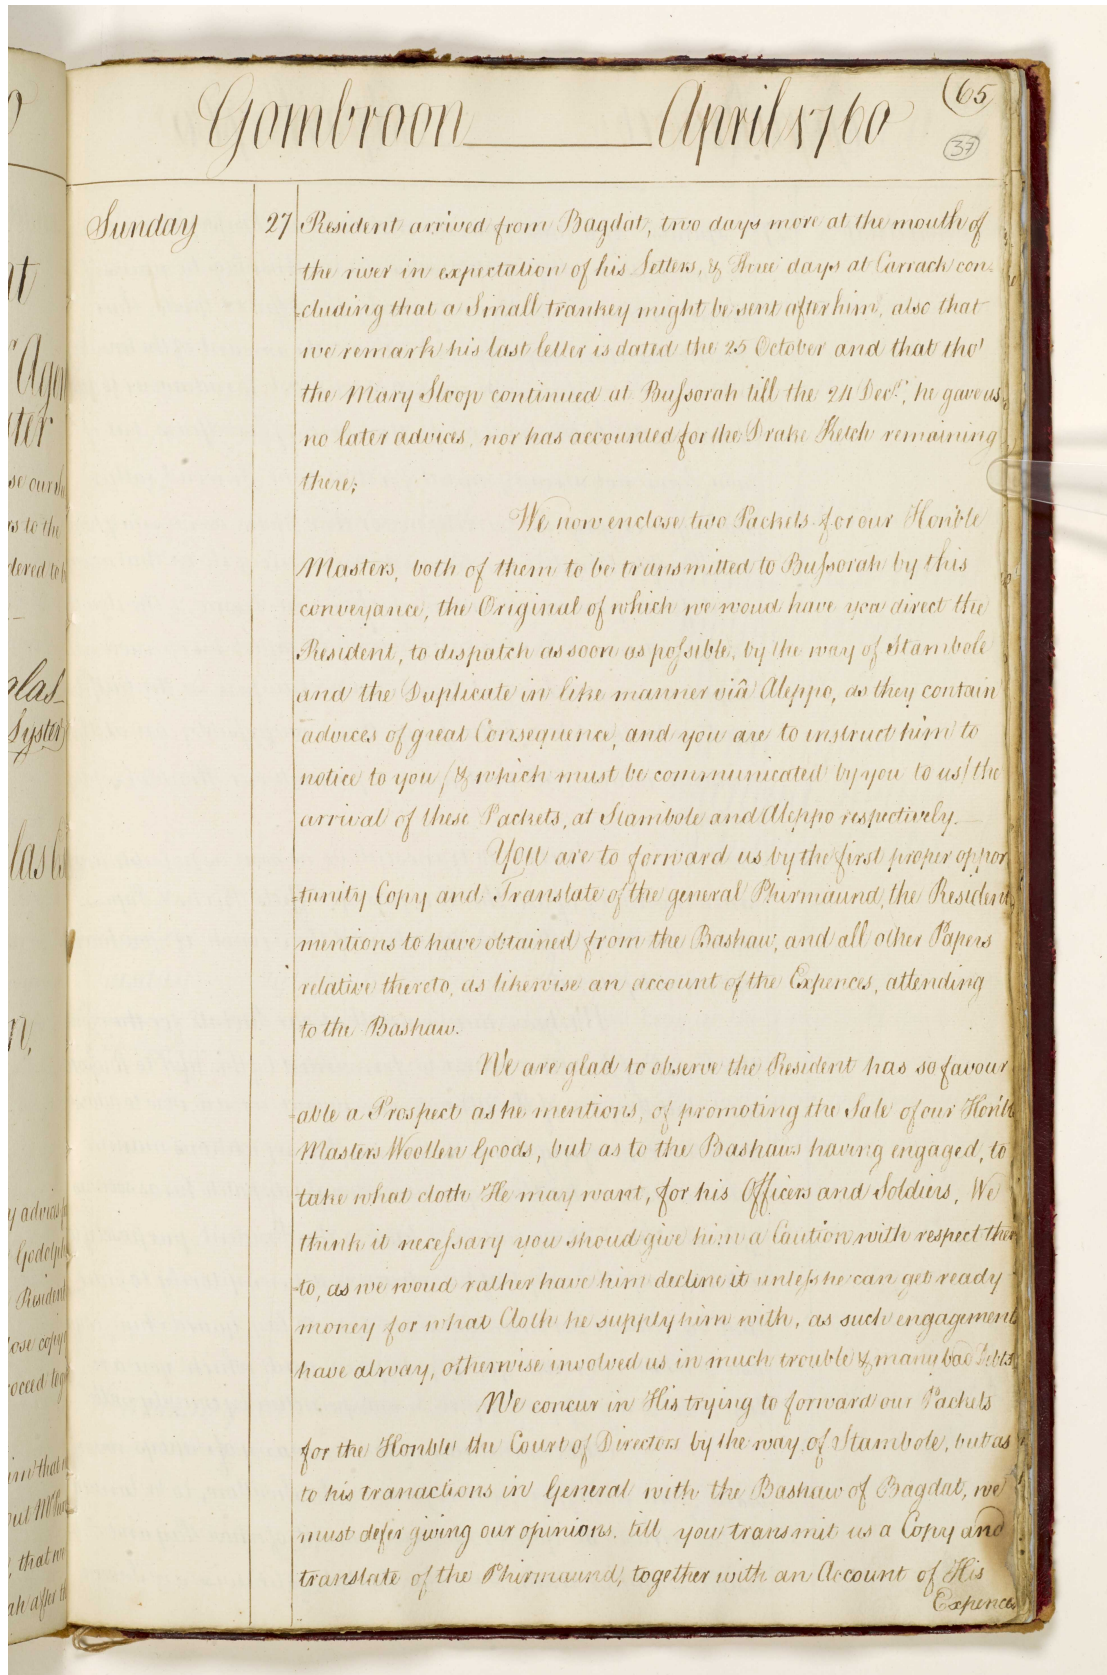 (65
Gombroon April 1760
37
Sunday 27 Resident arrived from Bagdat, two days more at the mouth of
the river in expectation of his Letters, & Three days at Carrack con-
=cluding that a Small trankey might be sent after him, also that
we remark his last letter is dated the 25 October and that tho'
the Mary Sloop continued at Bussorah till the 24 Decr., he gave us
no later advices, nor has accounted for the Drake Ketch remaining
there;
We now enclose two Packets for our Hon'ble
Masters, both of them to be transmitted to Bussorah by this
conveyance, the Original of which we woud have you direct the
President, to dispatch as soon as possible, by the way of Stambole
and the Duplicate in like manner viâ Aleppo, as they contain
advices of great Consequence, and you are to instruct him to
notice to you /& which must be communicated by you to us/ the
arrival of these Packets, at Stambole and Aleppo respectively.
You are to forward us by the first proper oppor
=tunity Copy and Translate of the general Phirmaund, the Resident
mentions to have obtained from the Bashaw, and all other Papers
relative thereto, as likewise an account of the Expences, attending
to the Bashaw.
We are glad to observe the Resident has so favour
=able a Prospect as he mentions, of promoting the Sale of our Honble
Masters Woollen Goods, but as to the Bashaws having engaged, to
take what cloth He may want, for his Officers and Soldiers, We
think it necessary you shoud give him a Caution with respect there
=to, as we woud rather have him decline it unless he can get ready
money for what Cloth he supply him with, as such engagements
have alway, otherwise involved us in much trouble & many bad Debts
We concur in His trying to forward our Packets
for the Honble the Court of Directors by the way of Stambole, but as
to his tranactions in General with the Bashaw of Bagdat, we
must defer giving our opinions till you transmit us a Copy and
translate of the Phirmaund, together with an Account of His
Expences